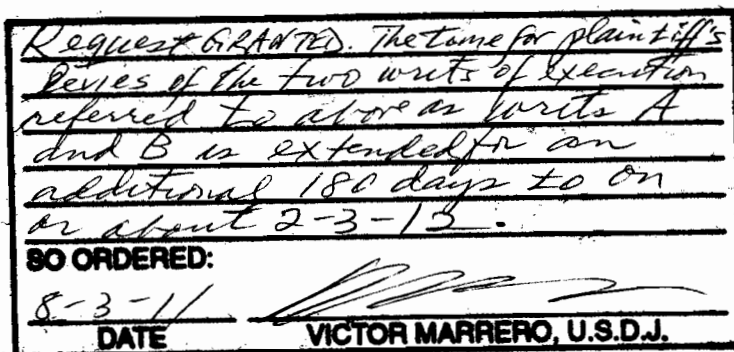 Request GRANTED. The time for plaintiff's
levies of the two writs of execution
referred to above as writs A
and B is extended for an
additional 180 days to on
or about 2-3-12.
SO ORDERED:
8-3-11
DATE VICTOR MARRERO, U.S.D.J.